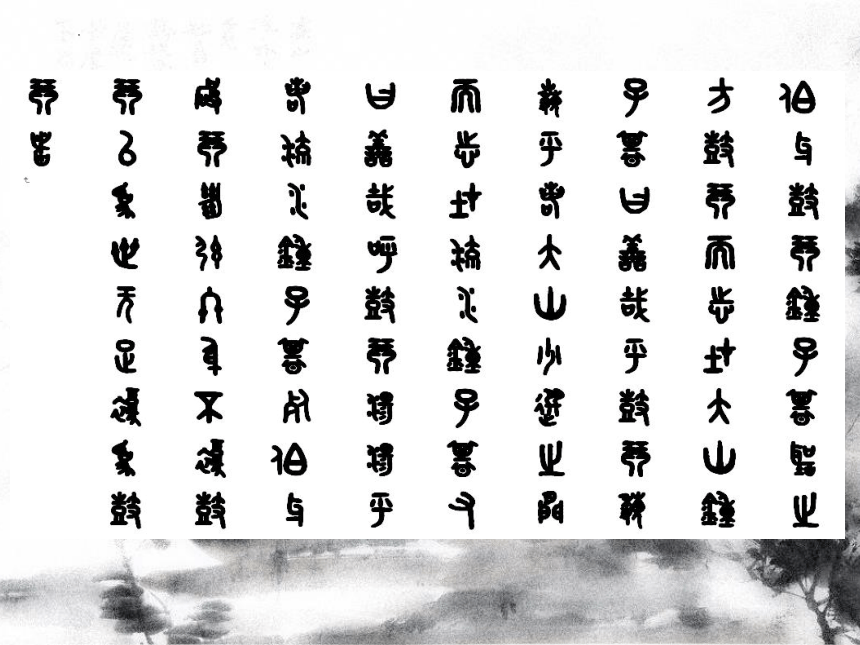 伯牙鼓琴鍾子期聽之
方鼓琴而志在大山鍾
子期曰善哉乎鼓琴巍
巍乎若大山少選之間
而志在流水鍾子期又
曰善哉呼鼓琴湯湯乎
若流水鍾子期死伯牙
破琴絕弦終身不復鼓
琴以為世无足復為鼓
琴者